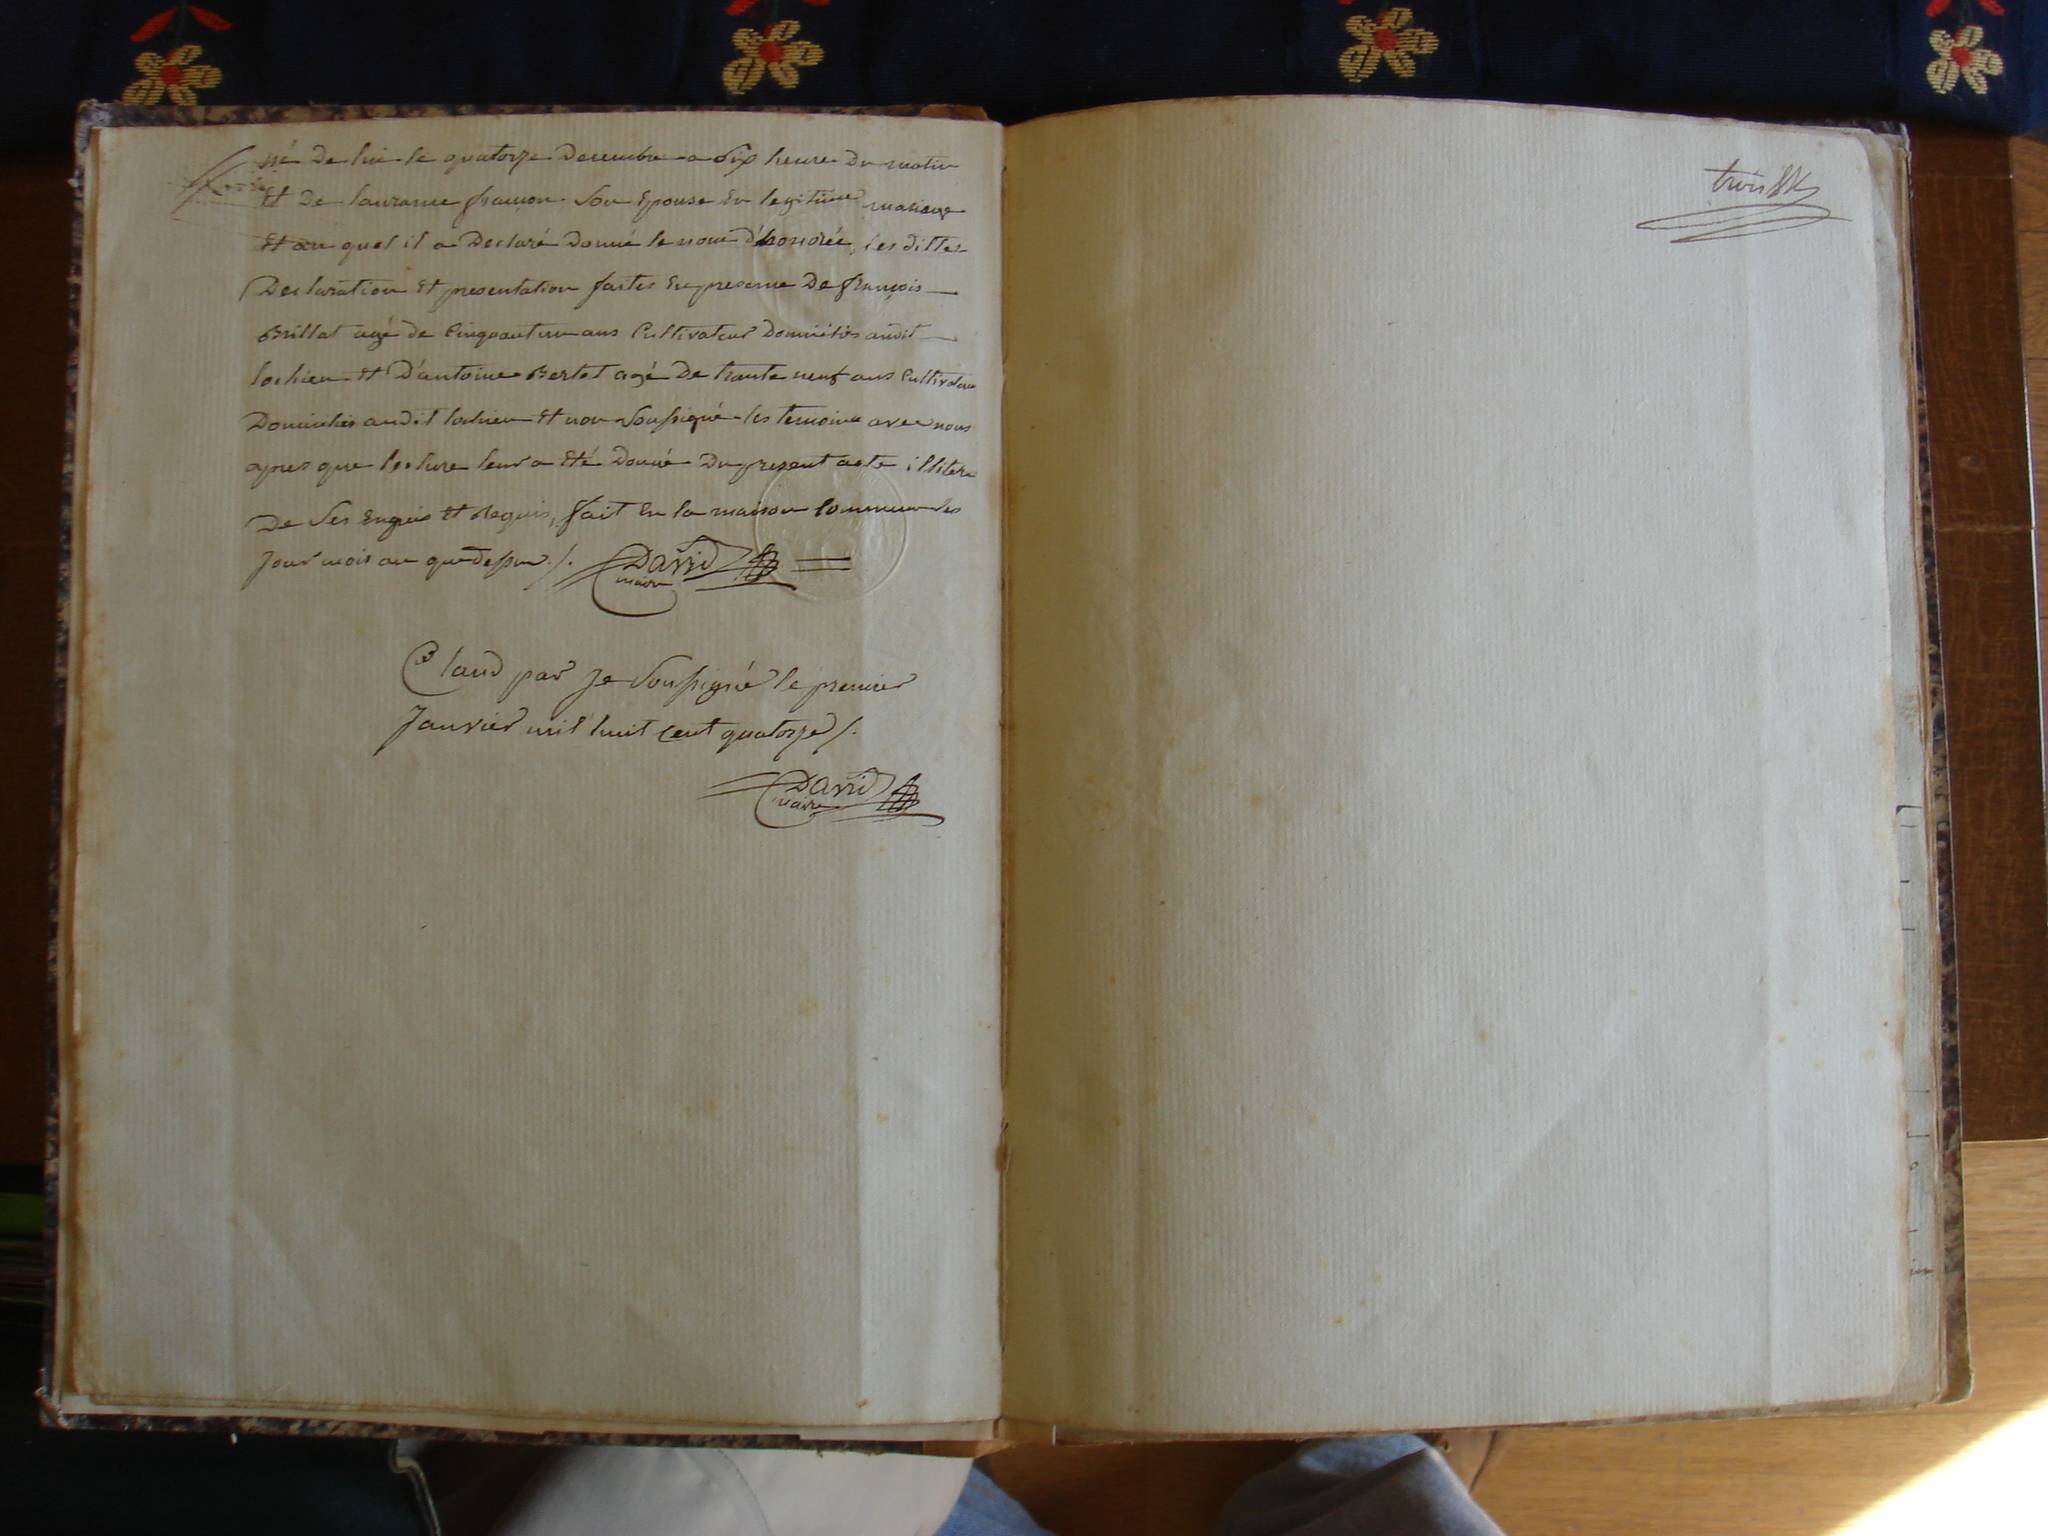 né de lui le quatorze Decembre a Six heure Du matin
Et De laurance framon Son Epouse En legitime mariage
Et au quel il a Declaré Donné le nom d'honorée, les dittes
Declaration Et presentation faites En presence De françois
Brillat agé de Cinquante un ans Cultivateur Domiciliés audit
lochieu Et D'antoine Bertet agé De trante neuf ans Cultivateur
Domiciliés audit lochieu Et non Soussigné les temoins avec nous
apres que lecture leur a Eté Donné Du present acte illitere
De Ses Enquis Et Requis, fait En la maison Commune les
Jour mois an que Dessus ./.
David
maire
Claud par Je Soussigné le premier
Janvier mil huit Cent quatorze /.
David
maire
trois